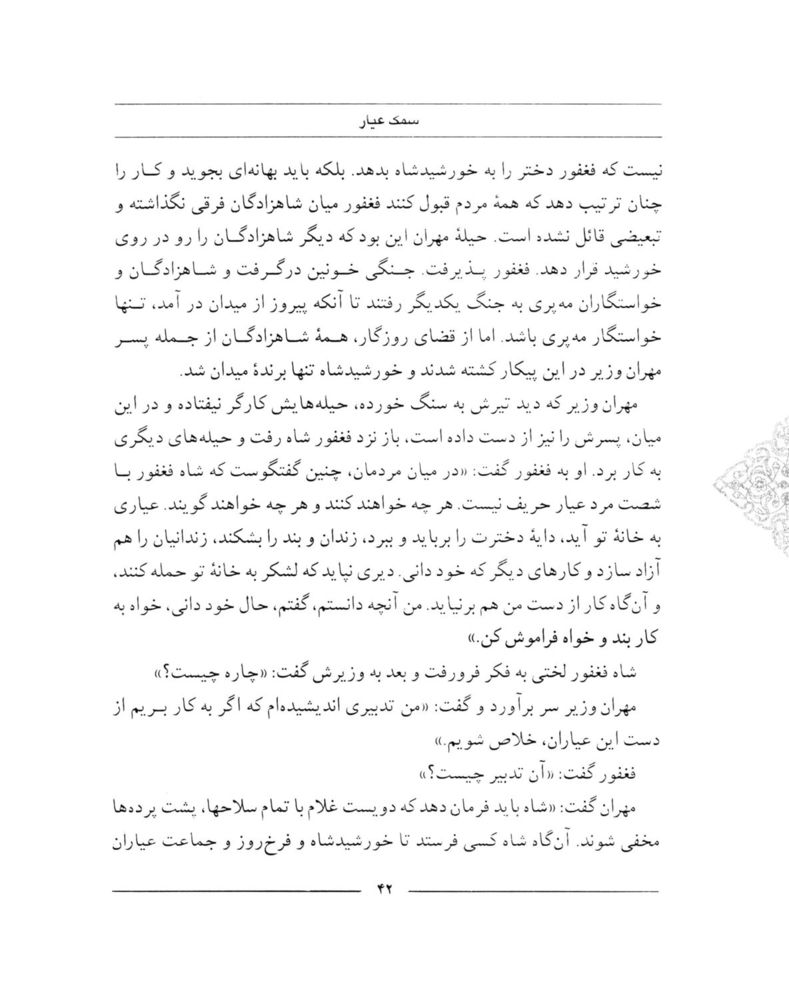 سمک عیار
نیست که فغفور دختر را به خورشیدشاه بدهد. بلکه باید بهانه‌ای بجوید و کار را
چنان ترتیب دهد که همهٔ مردم قبول کنند فغفور میان شاهزادگان فرقی نگذاشته و
تبعیضی قائل نشده است. حیلهٔ مهران این بود که دیگر شاهزادگان را رو در روی
خورشید قرار دهد. فغفور پذیرفت. جنگی خونین درگرفت و شاهزادگان و
خواستگاران مه‌پری به جنگ یکدیگر رفتند تا آنکه پیروز از میدان در آمد، تنها
خواستگار مه‌پری باشد. اما از قضای روزگار، همهٔ شاهزادگان از جمله پسر
مهران وزیر در این پیکار کشته شدند و خورشیدشاه تنها برندهٔ میدان شد.
مهران وزیر که دید تیرش به سنگ خورده، حیله‌هایش کارگر نیفتاده و در این
میان، پسرش را نیز از دست داده است، باز نزد فغفور شاه رفت و حیله‌های دیگری
به کار برد. او به فغفور گفت: «در میان مردمان، چنین گفتگوست که شاه فغفور با
شصت مرد عیار حریف نیست. هر چه خواهند کنند و هر چه خواهند گویند. عیاری
به خانهٔ تو آید، دایهٔ دخترت را برباید و ببرد، زندان و بند را بشکند، زندانیان را هم
آزاد سازد و کارهای دیگر که خود دانی. دیری نپاید که لشکر به خانهٔ تو حمله کنند،
و آن‌گاه کار از دست من هم برنیاید. من آنچه دانستم، گفتم، حال خود دانی، خواه به
کار بند و خواه فراموش کن.»
شاه فغفور لختی به فکر فرورفت و بعد به وزیرش گفت: «چاره چیست؟»
مهران وزیر سر برآورد و گفت: «من تدبیری اندیشیده‌ام که اگر به کار بریم از
دست این عیاران، خلاص شویم.»
فغفور گفت: «آن تدبیر چیست؟»
مهران گفت: «شاه باید فرمان دهد که دویست غلام با تمام سلاحها، پشت پرده‌ها
مخفی شوند. آن‌گاه شاه کسی فرستد تا خورشیدشاه و فرخ‌روز و جماعت عیاران
۴۲